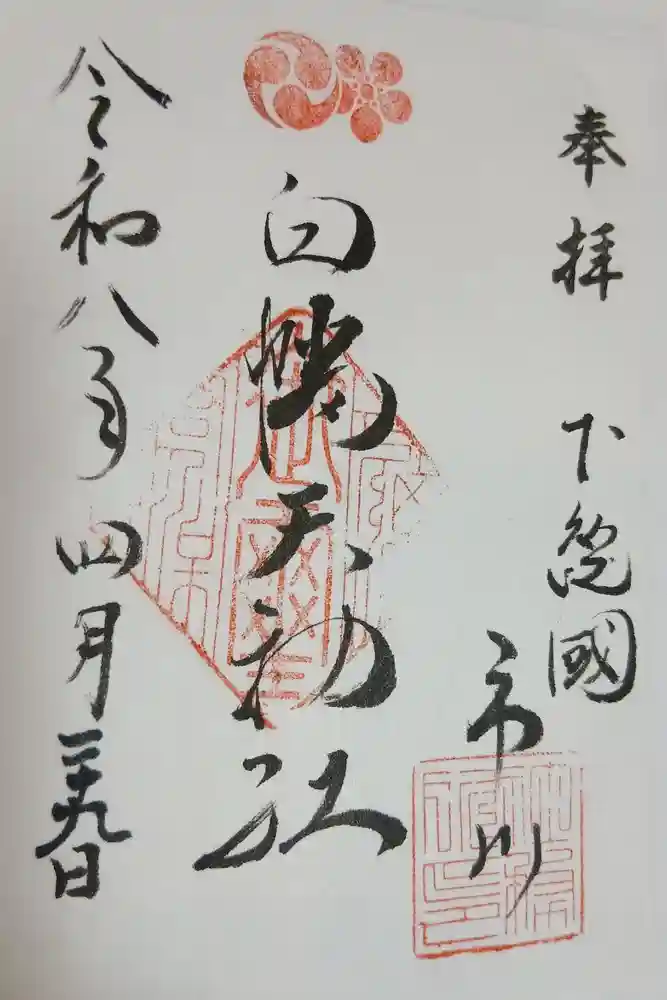 奉拝
下総國
市川
白幡天神社
令和八年四月二十九日